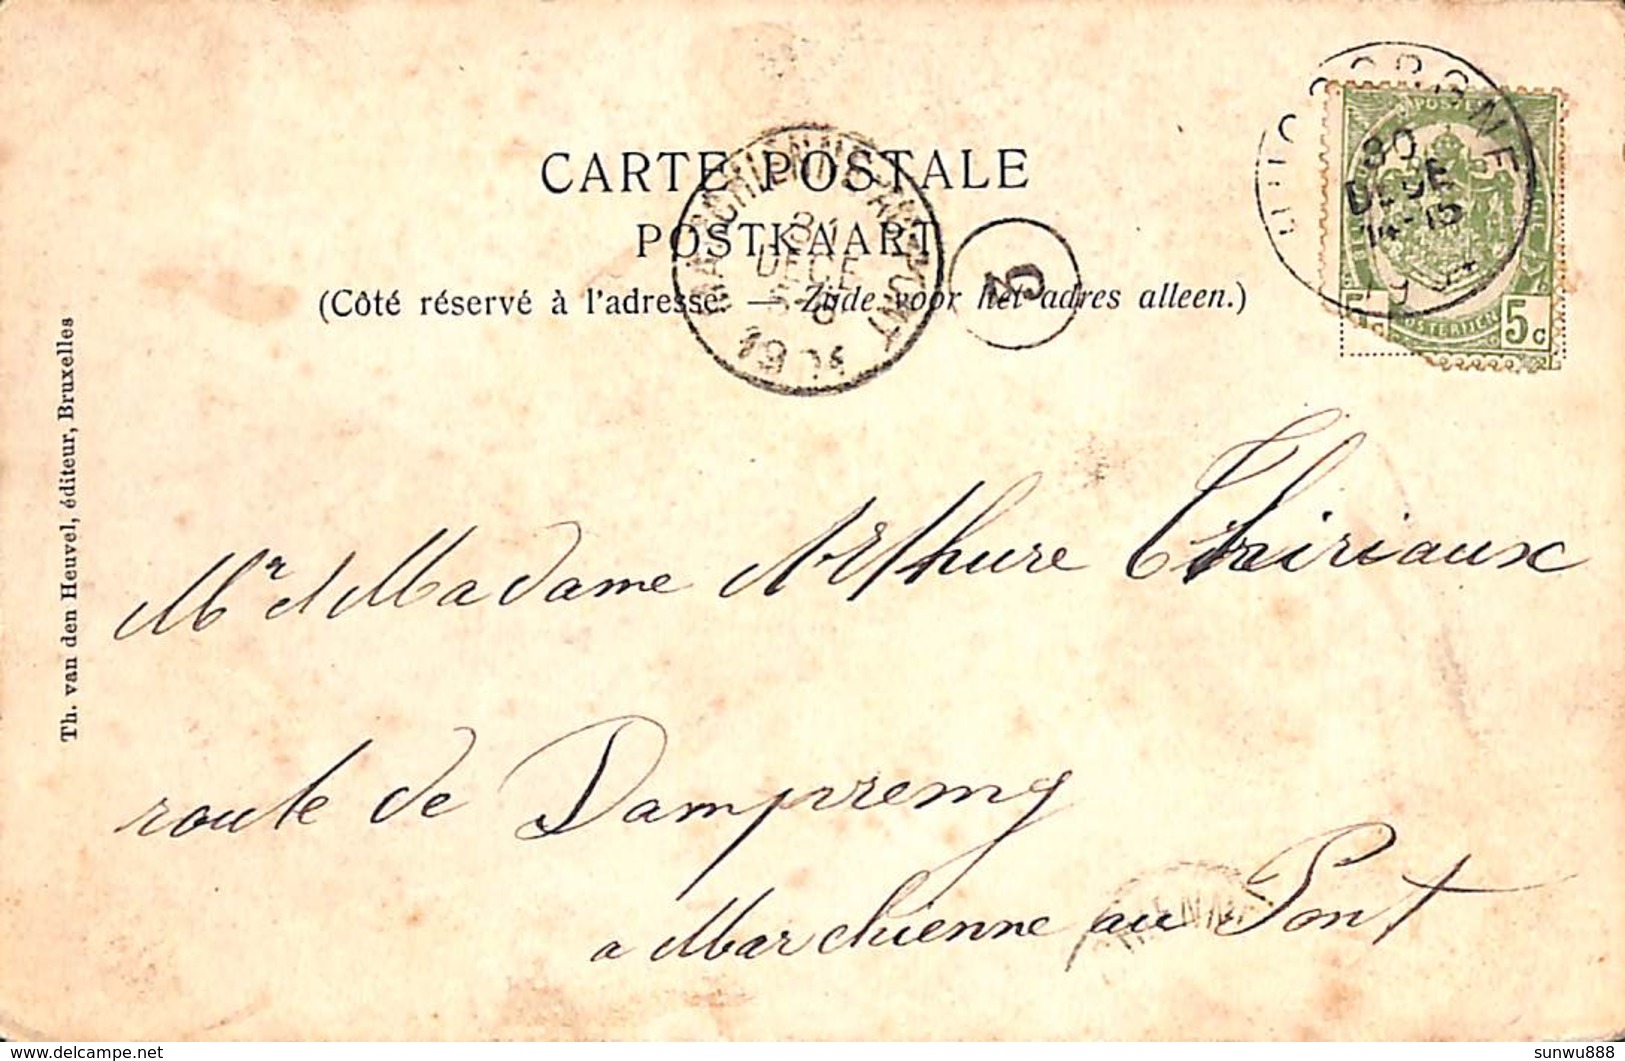 CARTE POSTALE
POSTKAART
(Côté réservé à l'adresse. — Zijde voor het adres alleen.)
MARCHIENNE-AU-PONT
31
DECE
1904
3
30
DECE
14-15
POSTERIJEN
5c
Th. van den Heuvel, éditeur, Bruxelles
Mr et Madame Arthure Thiriaux
route de Dampremy
a Marchienne au Pont
sunwu888